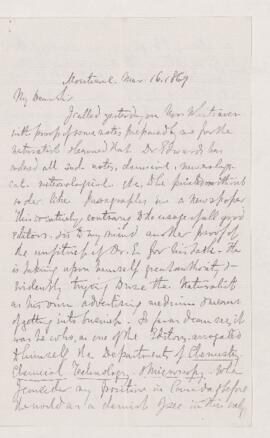 Montreal Mar. 16. 1869.
My Dear Sir
I called yesterday on Mr Whiteaves
with proof of some notes prepared by me for the
naturalist & learned that Dr Edwards has
ordered all such notes, chemical, mineralogi-
cal, meteorological etc. to be printed without
order like Paragraphs in a Newspaper
this is entirely contrary to the usage of all good
editors & is to my mind another proof of
the unfitness of Dr. E. for his task. He
is taking upon himself great authority &
evidently trying to use the Naturalist
as his own advertising medium & means
of getting into business. So far as I can see, it
was he who, as one of the Editors, arrogated
to himself the Department of Chemistry,
Chemical Technology & Microscopy. When
I consider my position in Canada & before
the world as a chemist I see in this only